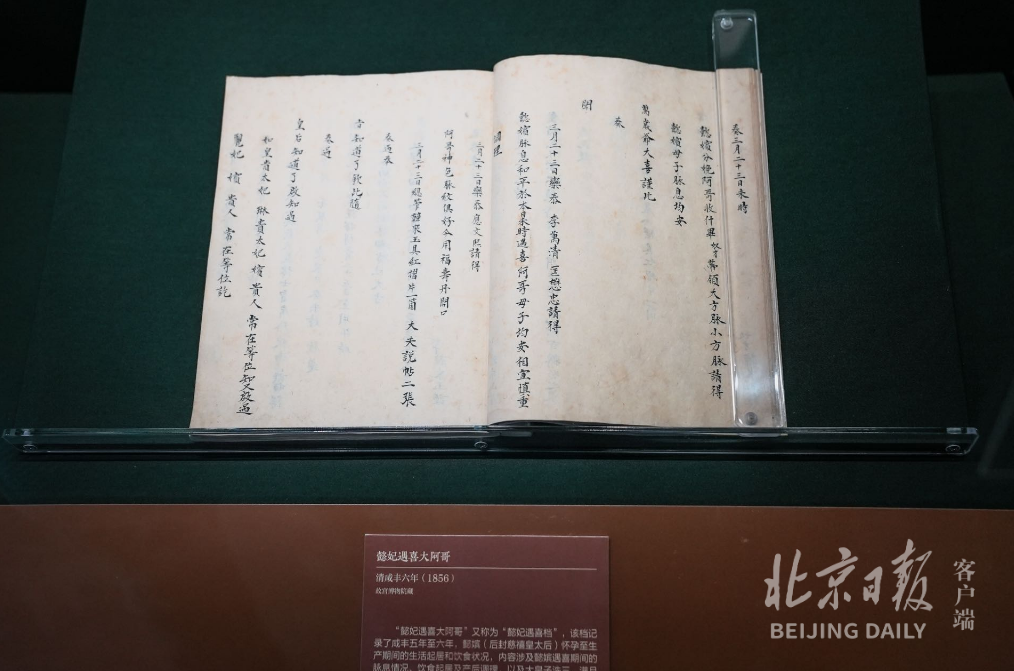 奏三月二十三日未時
懿嬪分娩阿哥收什畢 帶領大方脉小方脉請得
懿嬪母子脉息均安
萬歲爺大喜謹此
奏
聞
三月二十三日欒泰 李萬清 匡懋忠請得
懿嬪脉息和平於本日未時遇喜阿哥母子均安相宜慎重
調理
三月二十三日欒泰應文熙請得
阿哥神色脉紋俱好今用福壽丹開口
三月二十三日總管韓來玉具紅摺片一首 大夫說帖二張
奏過奏
旨知道了欽此隨
奏過
皇后知道了啟知過
和皇貴太妃 琳貴太妃 嬪 貴人 常在等位知又啟過
麗妃 嬪 貴人 常在等位訖
懿妃遇喜大阿哥
清咸丰六年（1856）
故宫博物院藏
“懿妃遇喜大阿哥”又称为“懿妃遇喜档”，该档记
录了咸丰五年至六年，懿嫔（后封慈禧皇太后）怀孕至生
产期间的生活起居和饮食状况，内容涉及懿嫔遇喜期间的
脉息情况、饮食起居及产后调理，以及
北京日报
客户端
BEIJING DAILY